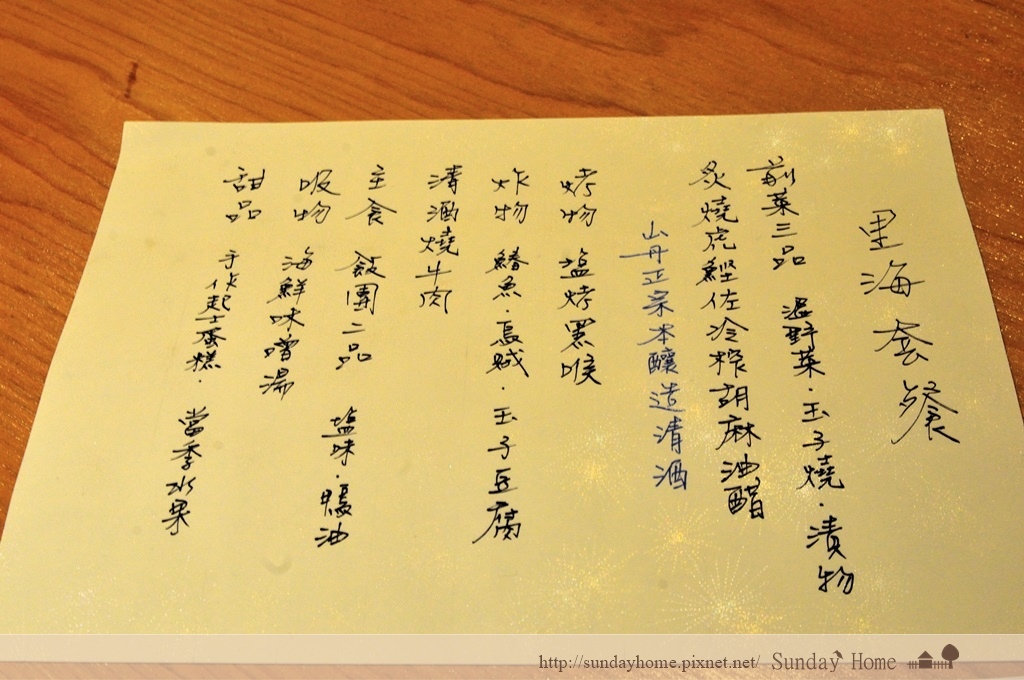 里海套餐
前菜三品 溫野菜．玉子燒．漬物
炙燒虎鰹佐冷榨胡麻油醋
山丹正宗本釀造清酒
烤物 塩烤黑喉
炸物 鰆魚．烏賊．玉子豆腐
清酒燒牛肉
主食 飯團二品 塩味．鵝油
吸物 海鮮味噌湯
甜品 手作起士蛋糕．當季水果
http://sundayhome.pixnet.net/ Sunday Home